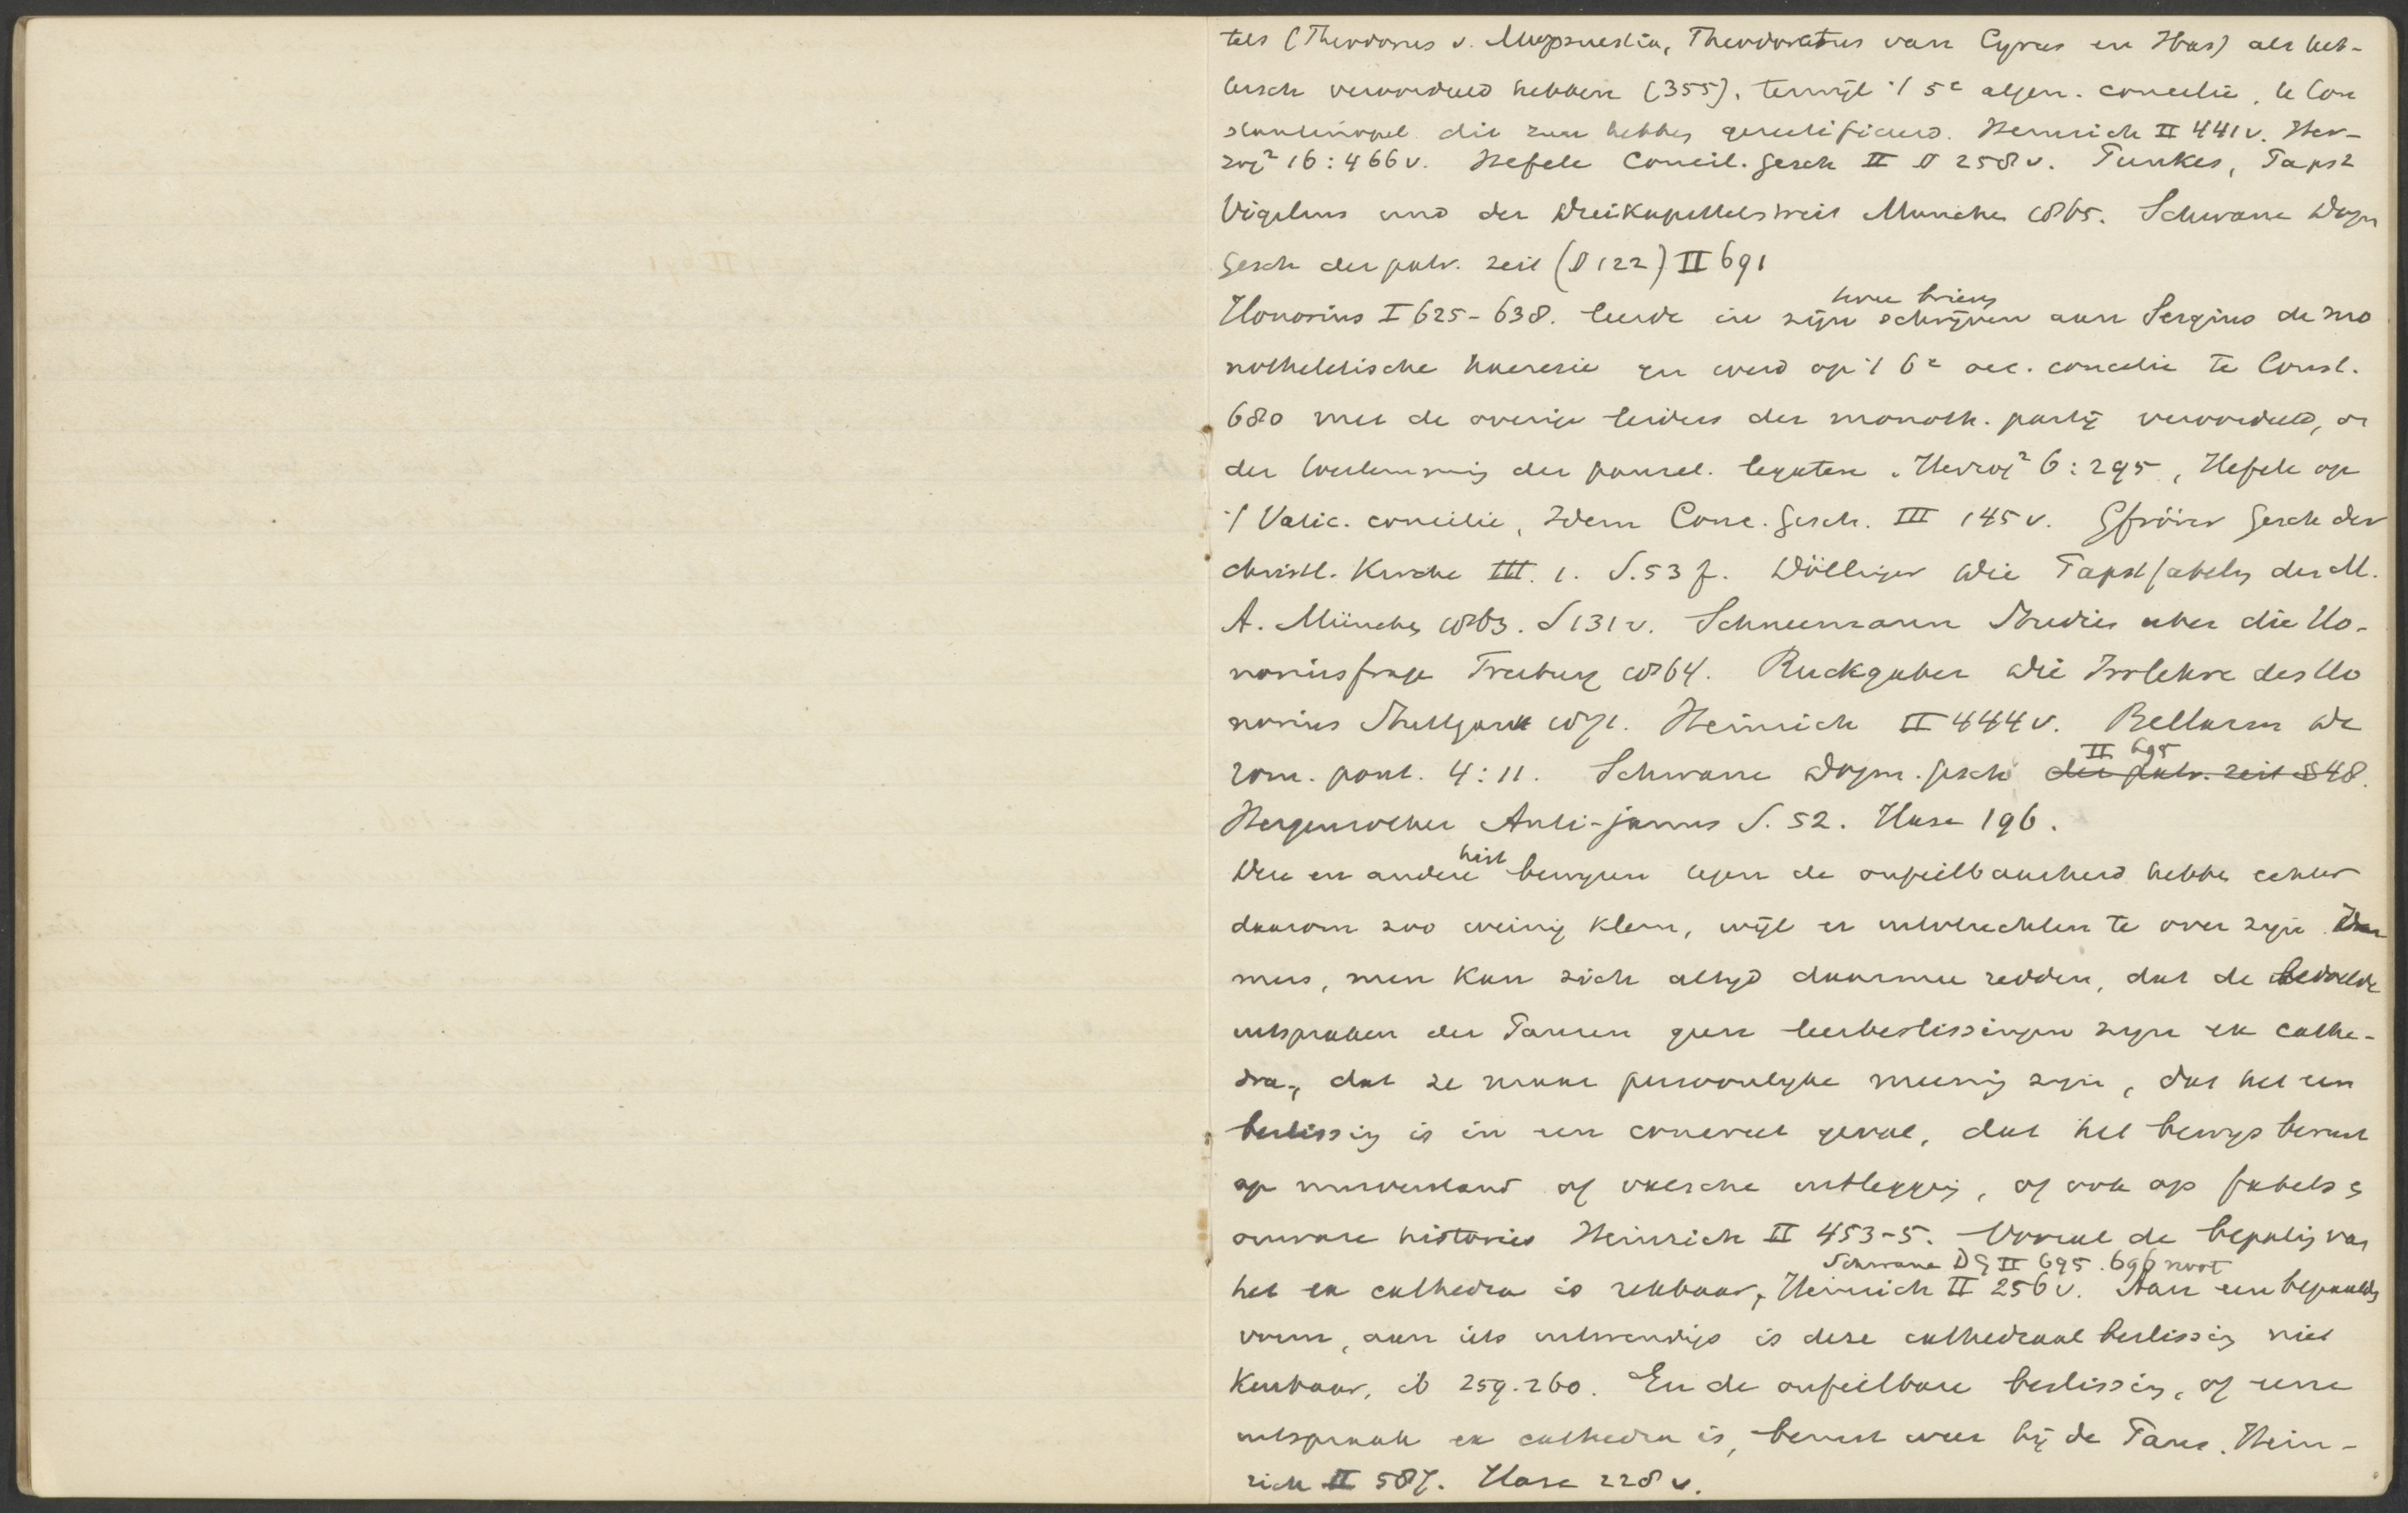 tels (Theodorus v. Mopsuestia, Theodoretus van Cyrus en Ibas) als ket-
tersch veroordeeld hebben (355), terwijl 't 5e algem. concilie, te Con
stantinopel dit zou hebben gerectificeerd. Heinrich II 441 v. Her-
zog² 16:466 v. Hefele Concil. gesch II § 258 v. Punkes, Papst
Vigilius und der Dreikapitelstreit Munchen 1865. Schwane Dogm
Gesch der patr. Zeit (§ 122) II 691
Honorius I 625-638. leerde in zijn schrijven aan Sergius de mo
twee brieven
notheletische haeresie en werd op 't 6e oec. concilie te Const.
680 met de overige leiders der monoth. partij veroordeeld, on
der toestemming der pausel. legaten. Herzog² 6:295, Hefele op
't Vatic. concilie, Idem Conc. Gesch. III 145 v. Gfrörer Gesch der
christl. Kirche III. 1. S. 53 f. Döllinger Die Papstfabeln des M.
A. München 1863. S 131 v. Schneemann Studien uber die Ho-
noriusfrage Freiburg 1864. Ruckgaber Die Irrlehre des Ho
norius Stuttgart 1871. Heinrich II 444 v. Bellarm de
rom. pont. 4:11. Schwane Dogm. gesch der patr. Zeit § 48.
II 695
Hergenrother Anti-janus S. 52. Hase 196.
Deze en andere bewijzen tegen de onfeilbaarheid hebben echter
hist
daarom zoo weinig klem, wijl er uitvluchten te over zijn. Im
mers, men kan zich altijd daarmee redden, dat de bedoelde
uitspraken der Pausen geen leerbeslissingen zijn ex cathe-
dra, dat ze maar persoonlijke meening zijn, dat het een
beslissing is in een concreet geval, dat het bewijs berust
op misverstand of valsche uitlegging, of ook op fabels en
onware histories Heinrich II 453-5. Vooral de bepaling van
het ex cathedra is rekbaar, Heinrich II 256 v. Aan een bepaalden
Schwane DG II 695. 696 noot
vorm, aan iets uitwendigs is deze cathedraal beslissing niet
kenbaar, ib 259. 260. En de onfeilbare beslissing, of eene
uitspraak ex cathedra is, berust weer bij de Paus. Hein-
rich II 587. Hase 228 v.